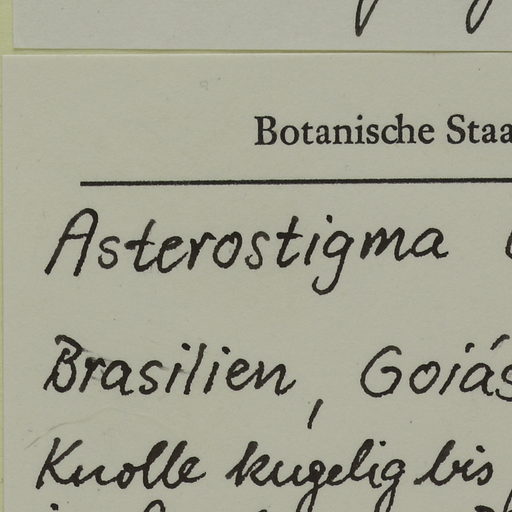 Botanische Staa
Asterostigma
Brasilien, Goiás
Knolle kugelig bis